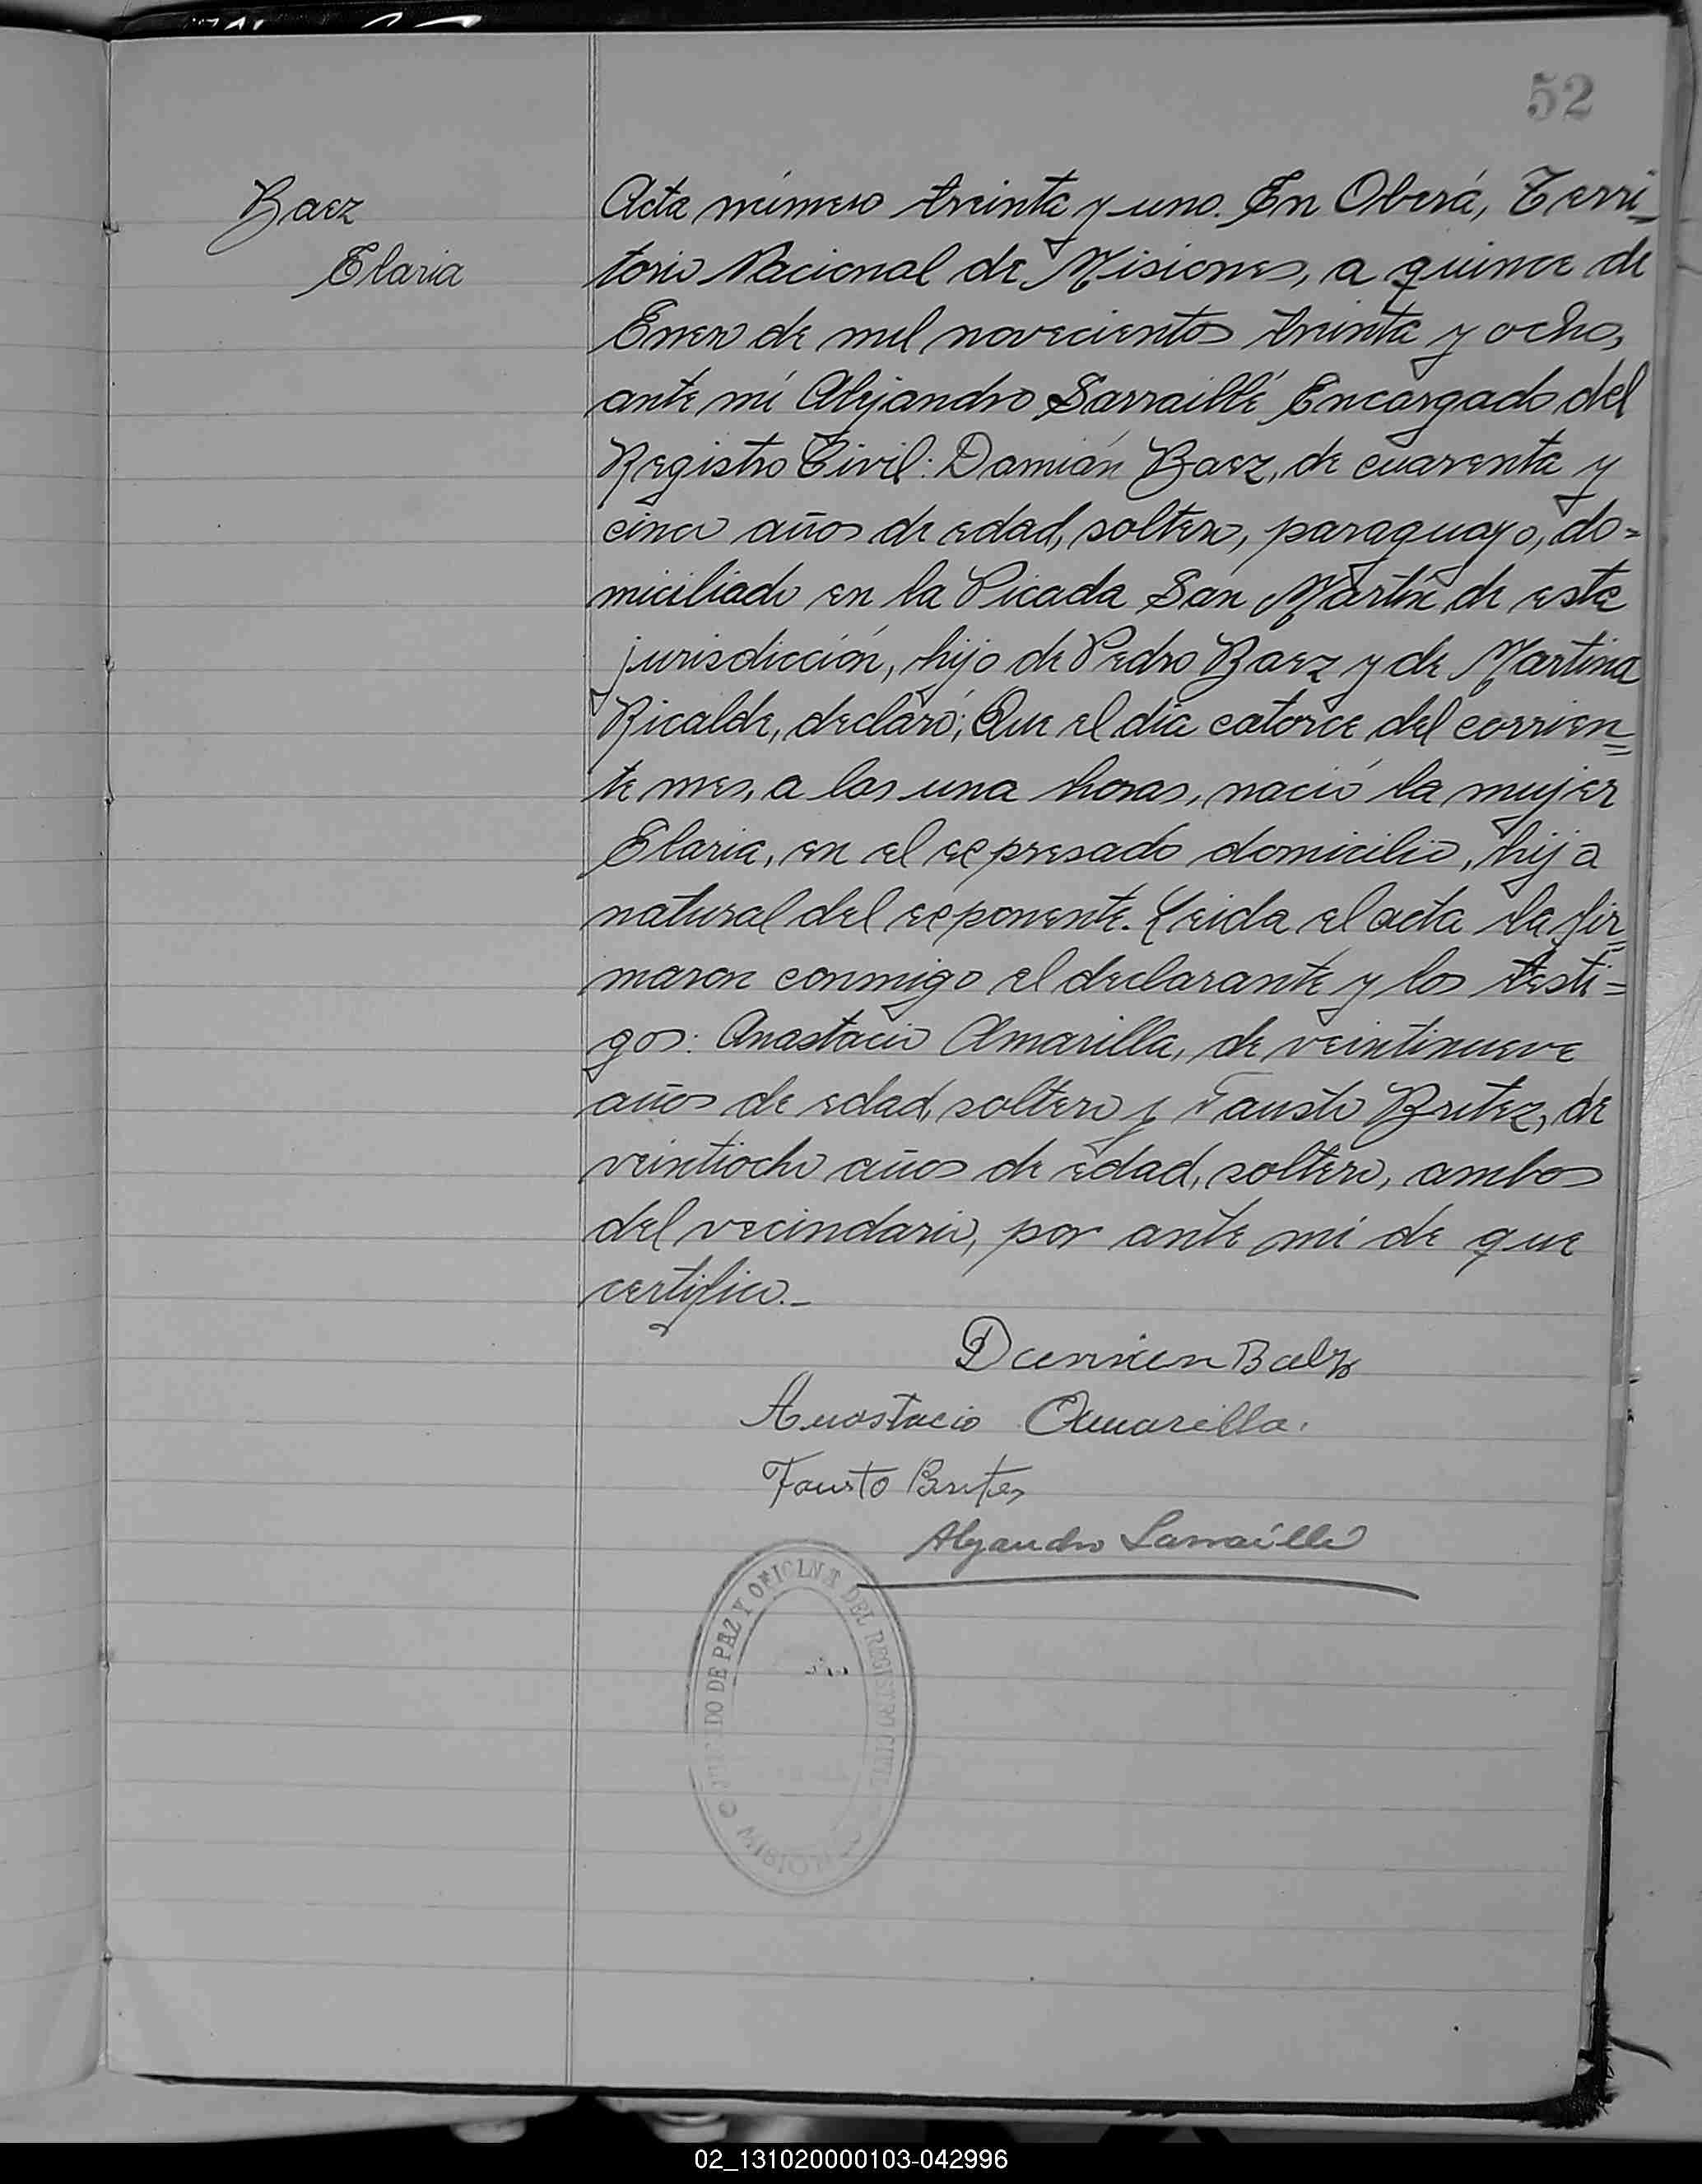 52
Baez
Elaria
Acta número treinta y uno. En Oberá, Terri-
torio Nacional de Misiones, a quince de
Enero de mil novecientos treinta y ocho,
ante mí Alejandro Sarraillé Encargado del
Registro Civil: Damián Baez, de cuarenta y
cinco años de edad, soltero, paraguayo, do=
miciliado en la Picada San Martín de esta
jurisdicción, hijo de Pedro Baez y de Martina
Ricalde, declaró; Que el día catorce del corrien=
te mes, a las una horas, nació la mujer
Elaria, en el expresado domicilio, hija
natural del exponente. Leida el acta la fir=
maron conmigo el declarante y los testi=
gos: Anastacio Amarilla, de veintinueve
años de edad, soltero y Fausto Britez, de
veintiocho años de edad, soltero, ambos
del vecindario, por ante mí de que
certifico.-
Damian Baez
Anastacio Amarilla.
Fausto Britez
Alejandro Sarraillé
JUZGADO DE PAZ Y OFICINA DEL REGISTRO CIVIL
02_131020000103-042996